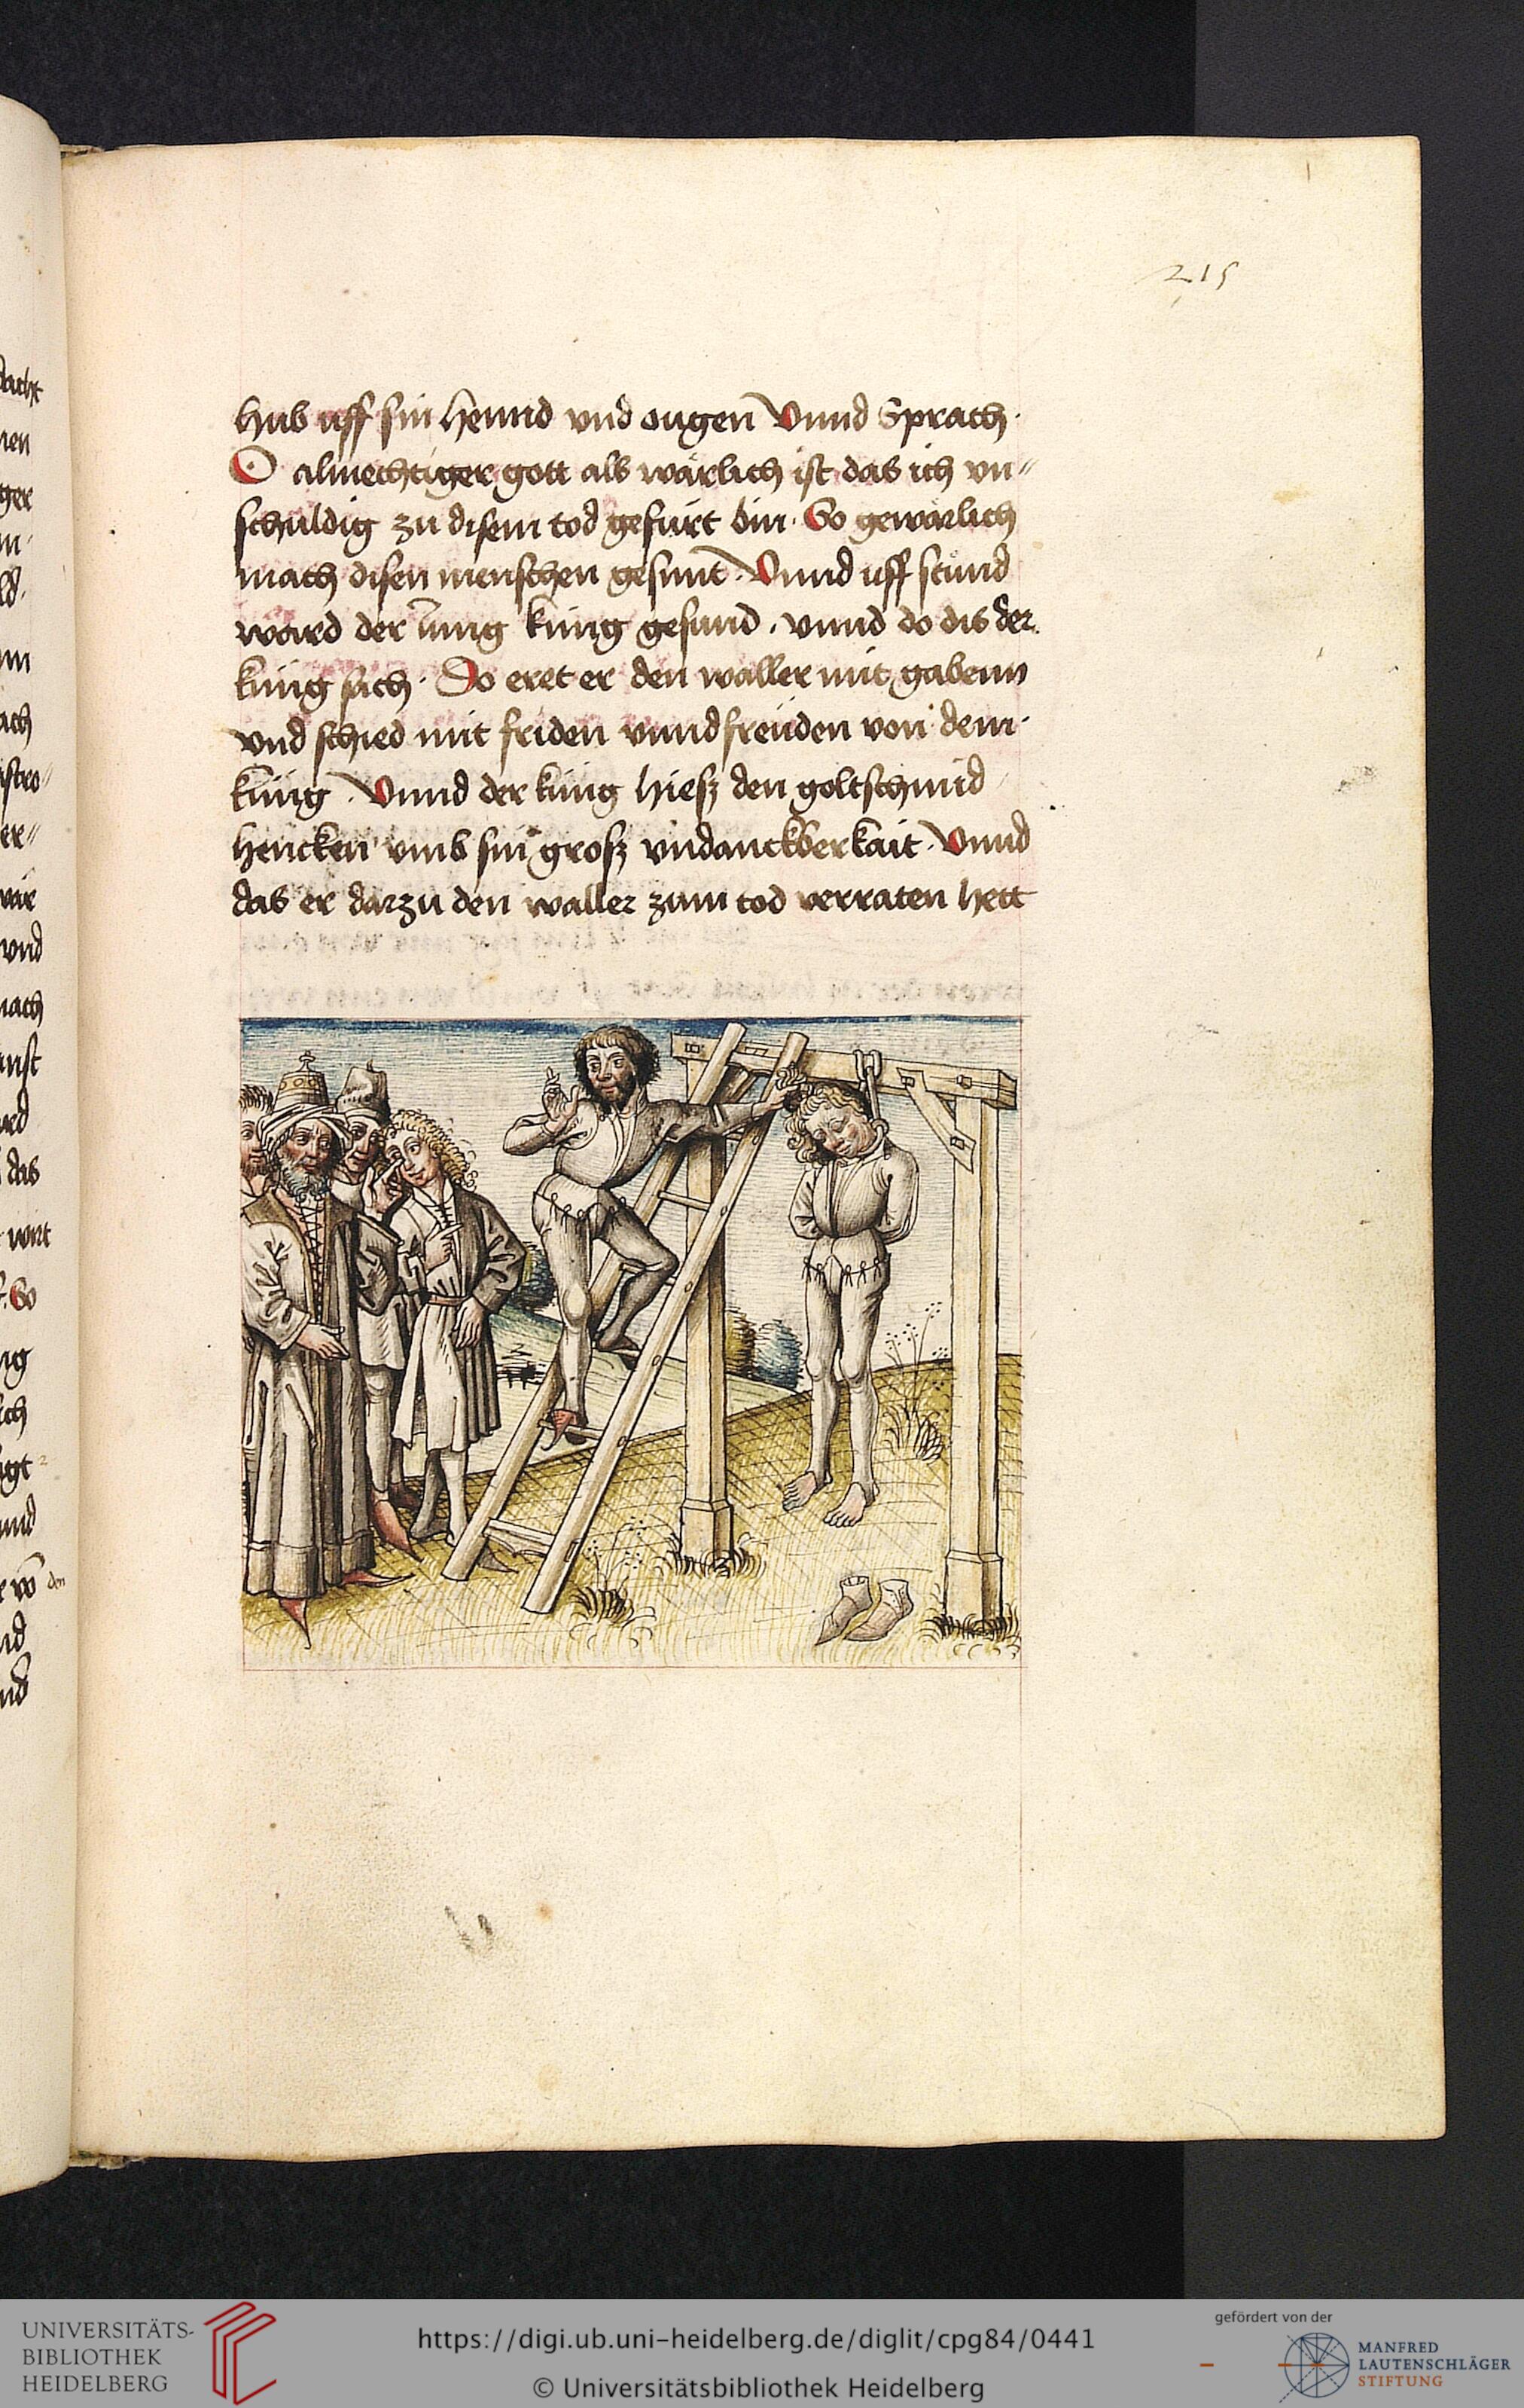 215
hub uff sin hennd vnd ougen Vnnd Sprach·
O almechtiger gott als wärlich ist das ich vn〃
schuldig zu disem tod gefürt bin· So gewärlich
mach disen menschen gesunt· Vnnd uff stund
ward der iung küng gesund· vnnd do dis der
küng sach· Do eret er den waller mit gabenn
vnd schied mit friden vnnd freüden von dem·
küng· Vnnd der küng hiesz den goltschmid
hencken vmb sin grosz vndanckberkait· Vnnd
das er darzu den waller zum tod verraten hett
ger
ld·
ach
vnd
das
wirt
So
vnd
den
UNIVERSITÄTS-
BIBLIOTHEK
HEIDELBERG
https://digi.ub.uni-heidelberg.de/diglit/cpg84/0441
© Universitätsbibliothek Heidelberg
gefördert von der
MANFRED
LAUTENSCHLÄGER
STIFTUNG